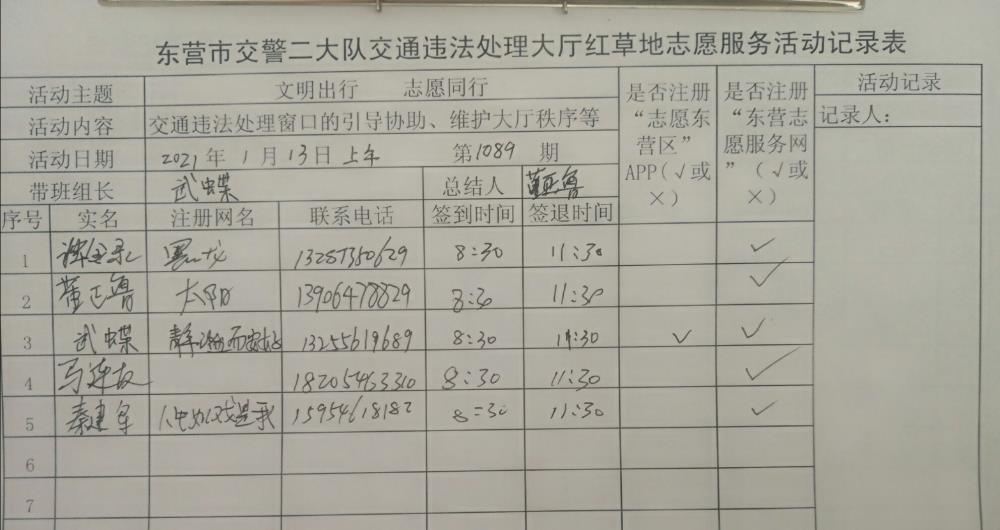 东营市交警二大队交通违法处理大厅红草地志愿服务活动记录表
活动主题 文明出行 志愿同行 是否注册“志愿东营区”APP(√或×) 是否注册“东营志愿服务网”(√或×) 活动记录
活动内容 交通违法处理窗口的引导协助、维护大厅秩序等 记录人：
活动日期 2021年1月13日上午 第1089期
带班组长 武蝶 总结人 董正鲁
序号 实名 注册网名 联系电话 签到时间 签退时间
1 13257350629 8:30 11:30 √
2 董正鲁 太阳 13906478829 8:30 11:30 √
3 武蝶 13255619689 8:30 11:30 √ √
4 18205463310 8:30 11:30 √
5 秦建军 15954618182 8:30 11:30 √
6
7